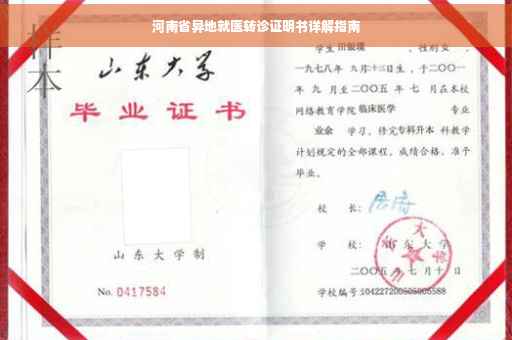 河南省异地就医转诊证明书详解指南
样本
山东大学
毕业证书
山东大学制
No. 0417584
学生 田银瑞 ,性别 女 ,
一九七八年 九月十三日生,于二〇〇一
年 九 月至二〇〇五 年 七 月在本校
网络教育学院 临床医学 专业
业余 学习,修完专科升本 科教学
计划规定的全部课程,成绩合格,准予
毕业。
校 长:
学 校: 山东大学
二〇〇五 年 七 月 十 日
学校编号:104227200505005588